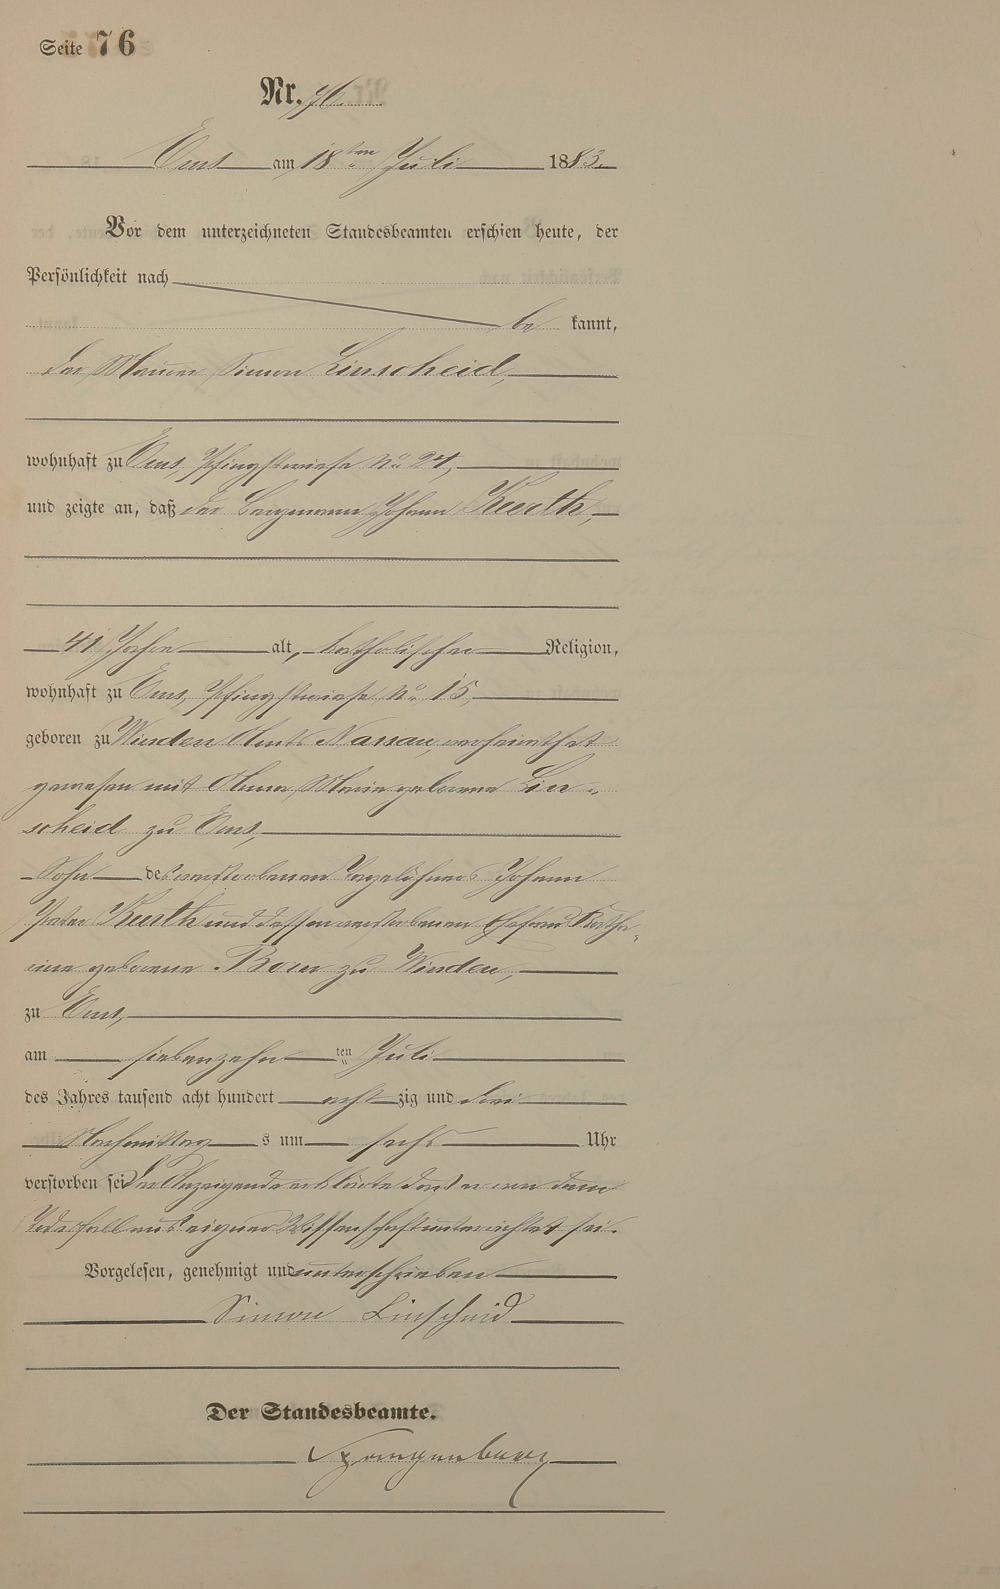 Seite 76
Nr. 76.
Ems am 18ten Juli 1883.
Vor dem unterzeichneten Standesbeamten erschien heute, der
Persönlichkeit nach
be kannt,
der Maurer Simon Linscheid,
wohnhaft zu Ems, Pfingstwiese No 24,
und zeigte an, daß der Bergmann Johann Keerth,
41 Jahre alt, katholischer Religion,
wohnhaft zu Ems, Pfingstwiese No 15,
geboren zu Winden Amts Nassau, verheirathet
gewesen mit Anna Maria geborene Lin-
scheid zu Ems,
Sohn des verstorbenen Tagelöhners Johann
Peter Keerth und dessen verstorbenen Ehefrau Katha-
rine geborene Born zu Winden,
zu Ems,
am siebenzehn ten Juli
des Jahres tausend acht hundert acht zig und drei
Nachmittag s um sechs Uhr
verstorben sei. Der Anzeigende erklärte daß er von dem
Todesfall aus eigener Wissenschaft unterrichtet sei.
Vorgelesen, genehmigt und unterschrieben
Simon Linscheid
Der Standesbeamte.